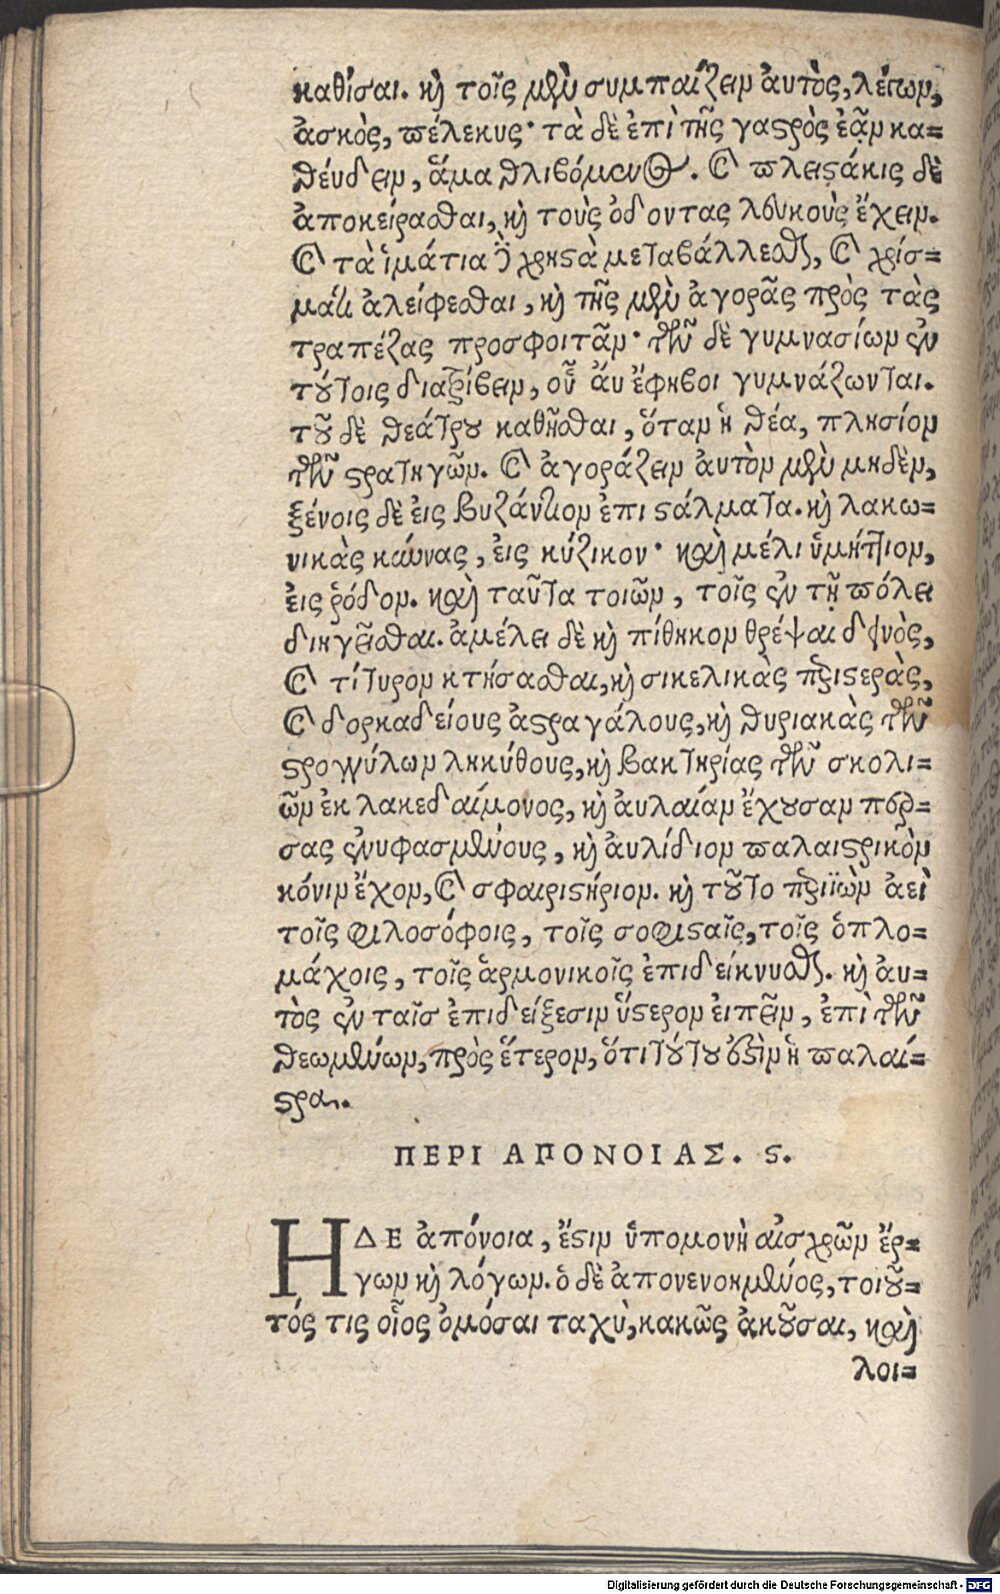 καθίσαι. κὶ τοῖς μὲν συμπαίζειν ἀυτὸς, λέγων,
ἀσκὸς, πέλεκυς· τὰ δὲ ἐπὶ τῆς γαϛρὸς ἐᾷν κα=
θέυδειν, ἅμα θλιβόμενος. καὶ πλειϛάκις δὲ
ἀποκείραϲθαι, κὶ τοὺς ὀδοντας λευκοὺς ἔχειν.
καὶ τὰ ἱμάτια δὲ χρηϛὰ μεταβάλλεσθαι, καὶ χρίσ=
ματι ἀλείφεσθαι, κὶ τῆς μὲν ἀγορᾶς πρὸς τὰς
τραπέζας προσφοιτᾶν· τῶν δὲ γυμνασίων ἐν
τούτοις διατρίβειν, οὗ ἂυ ἔφηβοι γυμνάζωνται.
τοῦ δὲ θεάτρου καθῆσθαι, ὅταν ἡ θέα, πλησίον
τῶν ϛρατηγῶν. καὶ ἀγοράζειν ἀυτὸν μὲν μηδὲν,
ξένοις δὲ ἐις βυζάντιον ἐπιϛάλματα. κὶ λακω=
νικὰς κύνας, ἐις κύζικον· καὶ μέλι ὑμήττιον,
ἐις ῥόδον. καὶ ταῦτα τοιῶν, τοῖς ἐν τῇ πόλει
διηγεῖσθαι. ἀμέλει δὲ κὶ πίθηκον θρέψαι δεινὸς,
καὶ τίτυρον κτήσασθαι, κὶ σικελικὰς περιϛερὰς,
καὶ δορκαδείους ἀϛραγάλους, κὶ θυριακὰς τῶν
ϛρογγύλων ληκύθους, κὶ βακτηρίας τῶν σκολι=
ῶν ἐκ λακεδαίμονος, κὶ ἀυλαίαν ἔχουσαν πέρ=
σας ἐνυφασμένους, κὶ ἀυλίδιον παλαιϛρικὸν
κόνιν ἔχον, καὶ σφαιριϛήριον. κὶ τοῦτο περιϊὼν ἀεὶ
τοῖς φιλοσόφοις, τοῖς σοφιϛαῖς, τοῖς ὁπλο=
μάχοις, τοῖς ἁρμονικοῖς ἐπιδείκνυσθαι. κὶ ἀυ=
τὸς ἐν ταῖσ ἐπιδείξεσιν ὕϛερον ἐιπεῖν, ἐπὶ τῶν
θεωμένων, πρὸς ἕτερον, ὅτι τούτου ἐϛὶν ἡ παλαί=
ϛρα.
ΠΕΡΙ ΑΠΟΝΟΙΑΣ. ϛ.
Η ΔΕ ἀπόνοια, ἔϛιν ὑπομονὴ αἰσχρῶν ἔρ=
γων κὶ λόγων. ὁ δὲ ἀπονενοημένος, τοιοῦ=
τός τις οἷος ὀμόσαι ταχὺ, κακῶς ἀκοῦσαι, καὶ
λοι=
Digitalisierung gefördert durch die Deutsche Forschungsgemeinschaft - DFG